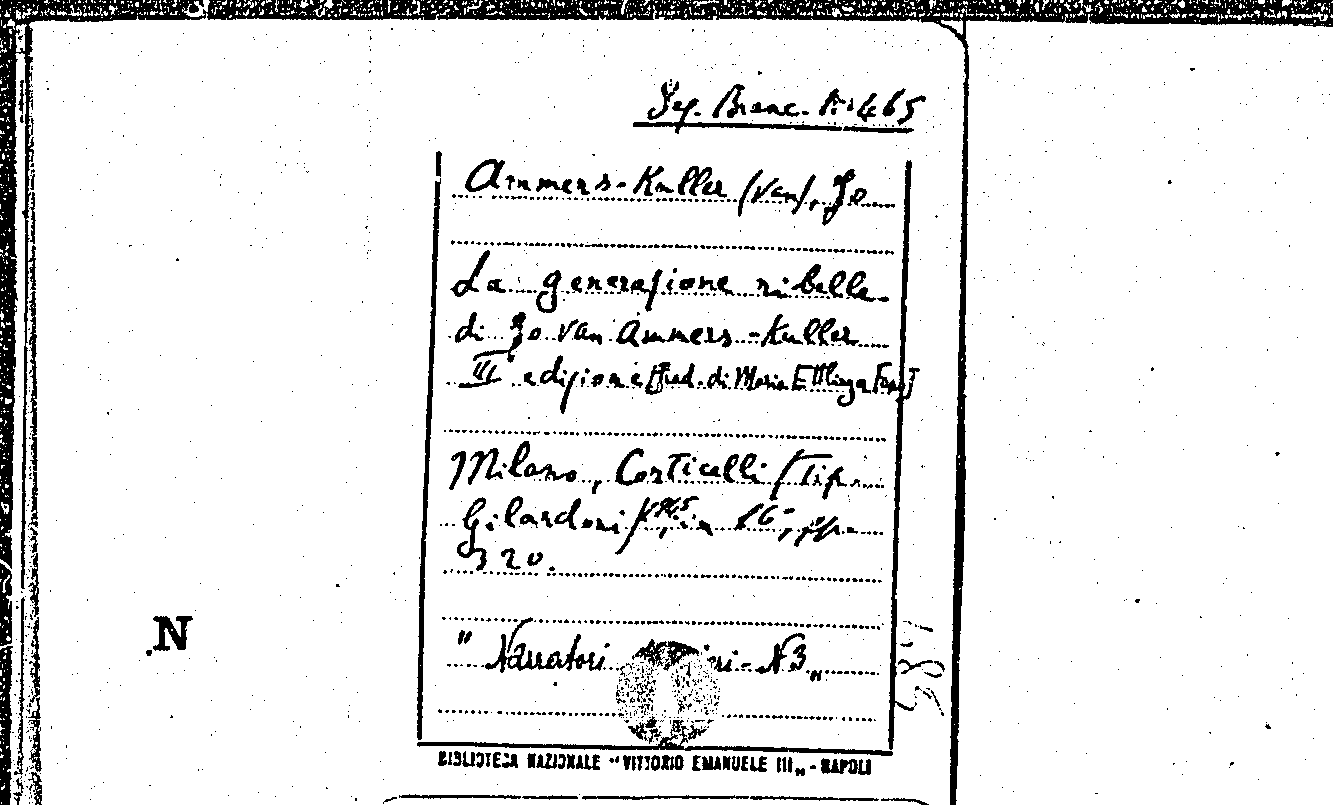 Sez. Branc. A: 465
Ammers-Kuller (van), Jo
La generazione ribelle
di Jo van Ammers-Kuller
III^a edizione [trad. di Maria Ettlinger Fano]
Milano, Corticelli (Tip.
Gilardoni), 1945, in 16°, pp.
320.
N
" Narratori N 3 „
BIBLIOTECA NAZIONALE "VITTORIO EMANUELE III„ - NAPOLI